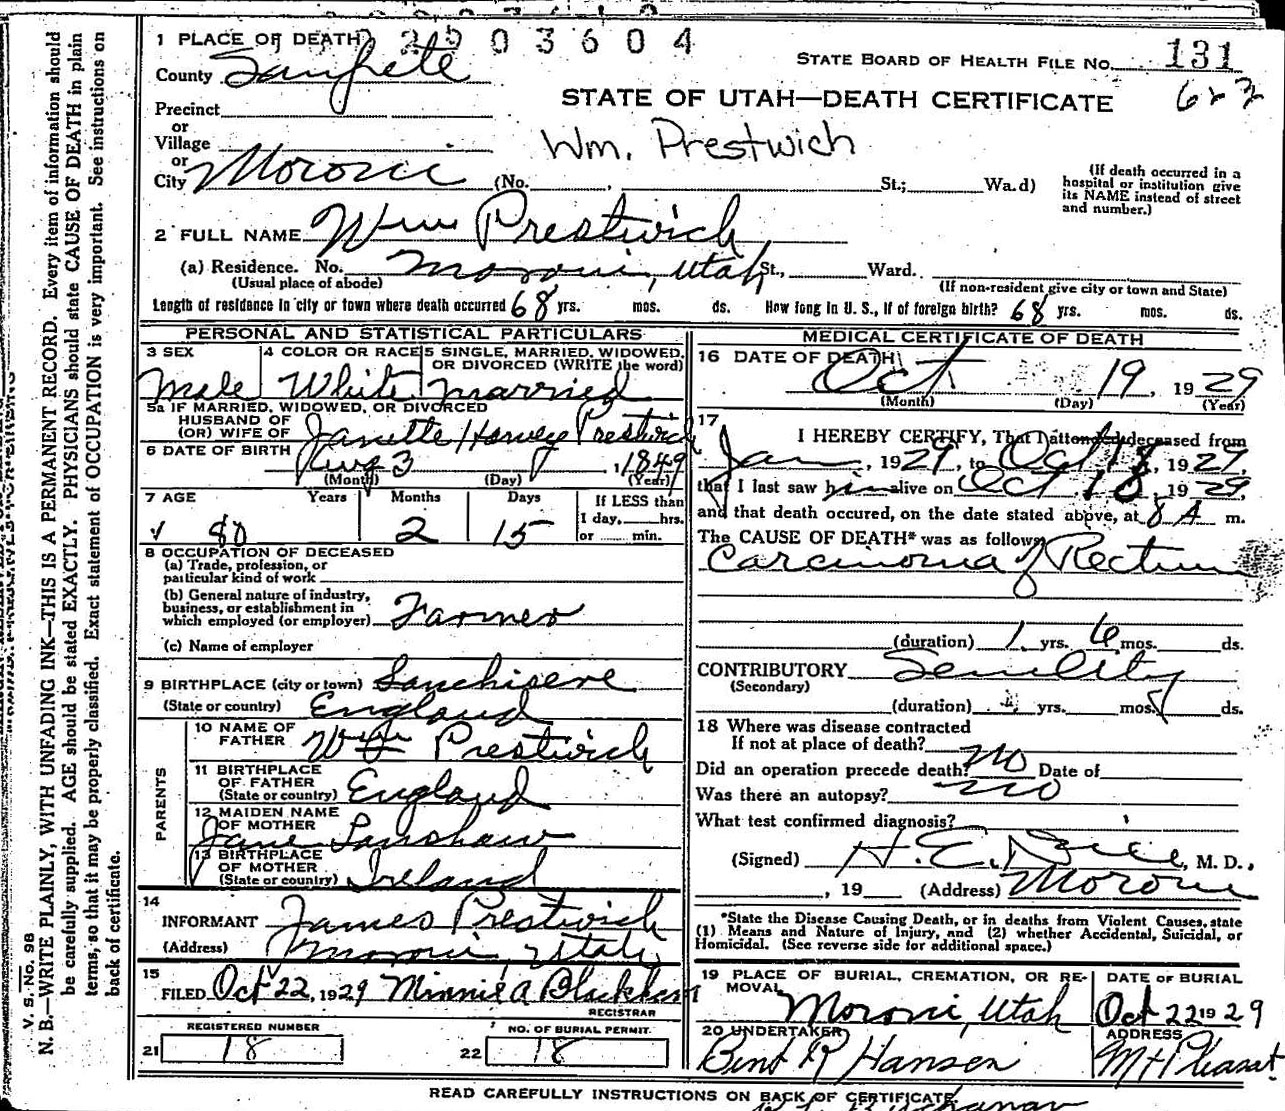 2903604
1 PLACE OF DEATH
STATE BOARD OF HEALTH FILE NO. 131
County Sanpete
STATE OF UTAH—DEATH CERTIFICATE
Precinct
or
Village
Wm. Prestwich
or
City Moroni (No. , St.; Wa.d)
(If death occurred in a
hospital or institution give
its NAME instead of street
and number.)
2 FULL NAME Wm Prestwich
(a) Residence. No. Moroni, Utah St., Ward.
(Usual place of abode) (If non-resident give city or town and State)
Length of residence in city or town where death occurred 68 yrs. mos. ds. How long in U. S., if of foreign birth? 68 yrs. mos. ds.
PERSONAL AND STATISTICAL PARTICULARS
3 SEX 4 COLOR OR RACE 5 SINGLE, MARRIED, WIDOWED,
OR DIVORCED (WRITE the word)
Male White Married
5a IF MARRIED, WIDOWED, OR DIVORCED
HUSBAND OF
(OR) WIFE OF Janette Harvey Prestwich
6 DATE OF BIRTH Aug 3, 1849
(Month) (Day) (Year)
7 AGE Years Months Days If LESS than
1 day, hrs.
or min.
80 2 15
8 OCCUPATION OF DECEASED
(a) Trade, profession, or
particular kind of work
(b) General nature of industry,
business, or establishment in
which employed (or employer) Farmer
(c) Name of employer
9 BIRTHPLACE (city or town)
(State or country) England
PARENTS
10 NAME OF
FATHER Wm Prestwich
11 BIRTHPLACE
OF FATHER
(State or country) England
12 MAIDEN NAME
OF MOTHER
Jane
13 BIRTHPLACE
OF MOTHER
(State or country) Ireland
14
INFORMANT James Prestwich
(Address) Moroni, Utah
15
FILED Oct 22, 1929 Minnie A Blackham
REGISTRAR
REGISTERED NUMBER NO. OF BURIAL PERMIT.
21 18 22 18
MEDICAL CERTIFICATE OF DEATH
16 DATE OF DEATH
Oct 19, 1929
(Month) (Day) (Year)
17
I HEREBY CERTIFY, That I attended deceased from
Jan, 1929, to Oct 18, 1929,
that I last saw him alive on Oct 18, 1929,
and that death occured, on the date stated above, at 8 A m.
The CAUSE OF DEATH* was as follows:
Carcinoma of Rectum
(duration) 1 yrs. 6 mos. ds.
CONTRIBUTORY Senility
(Secondary)
(duration) yrs. mos. ds.
18 Where was disease contracted
If not at place of death? no
Did an operation precede death? no Date of
Was there an autopsy? no
What test confirmed diagnosis?
(Signed) H. E. , M. D.,
, 19 (Address) Moroni
*State the Disease Causing Death, or in deaths from Violent Causes, state
(1) Means and Nature of Injury, and (2) whether Accidental, Suicidal, or
Homicidal. (See reverse side for additional space.)
19 PLACE OF BURIAL, CREMATION, OR RE- DATE OF BURIAL
MOVAL
Moroni, Utah Oct 22 1929
20 UNDERTAKER ADDRESS
R Hansen Mt Pleasant
READ CAREFULLY INSTRUCTIONS ON BACK OF CERTIFICATE.
V. S.-No. 98
N. B.—WRITE PLAINLY, WITH UNFADING INK—THIS IS A PERMANENT RECORD. Every item of information should
be carefully supplied. AGE should be stated EXACTLY. PHYSICIANS should state CAUSE OF DEATH in plain
terms, so that it may be properly classified. Exact statement of OCCUPATION is very important. See instructions on
back of certificate.